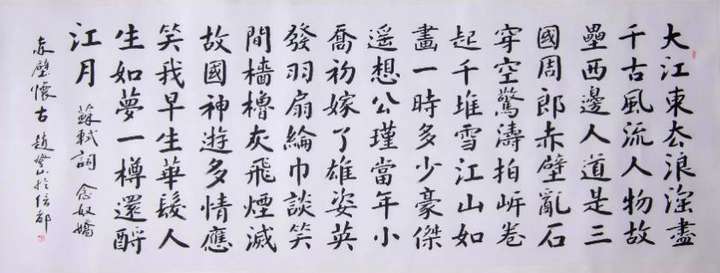 大江東去浪淘盡
千古風流人物故
壘西邊人道是三
國周郎赤壁亂石
穿空驚濤拍岸卷
起千堆雪江山如
畫一時多少豪傑
遙想公瑾當年小
喬初嫁了雄姿英
發羽扇綸巾談笑
間檣櫓灰飛煙滅
故國神遊多情應
笑我早生華髮人
生如夢一樽還酹
江月 蘇軾詞 念奴嬌
赤壁懷古 趙 山於信都